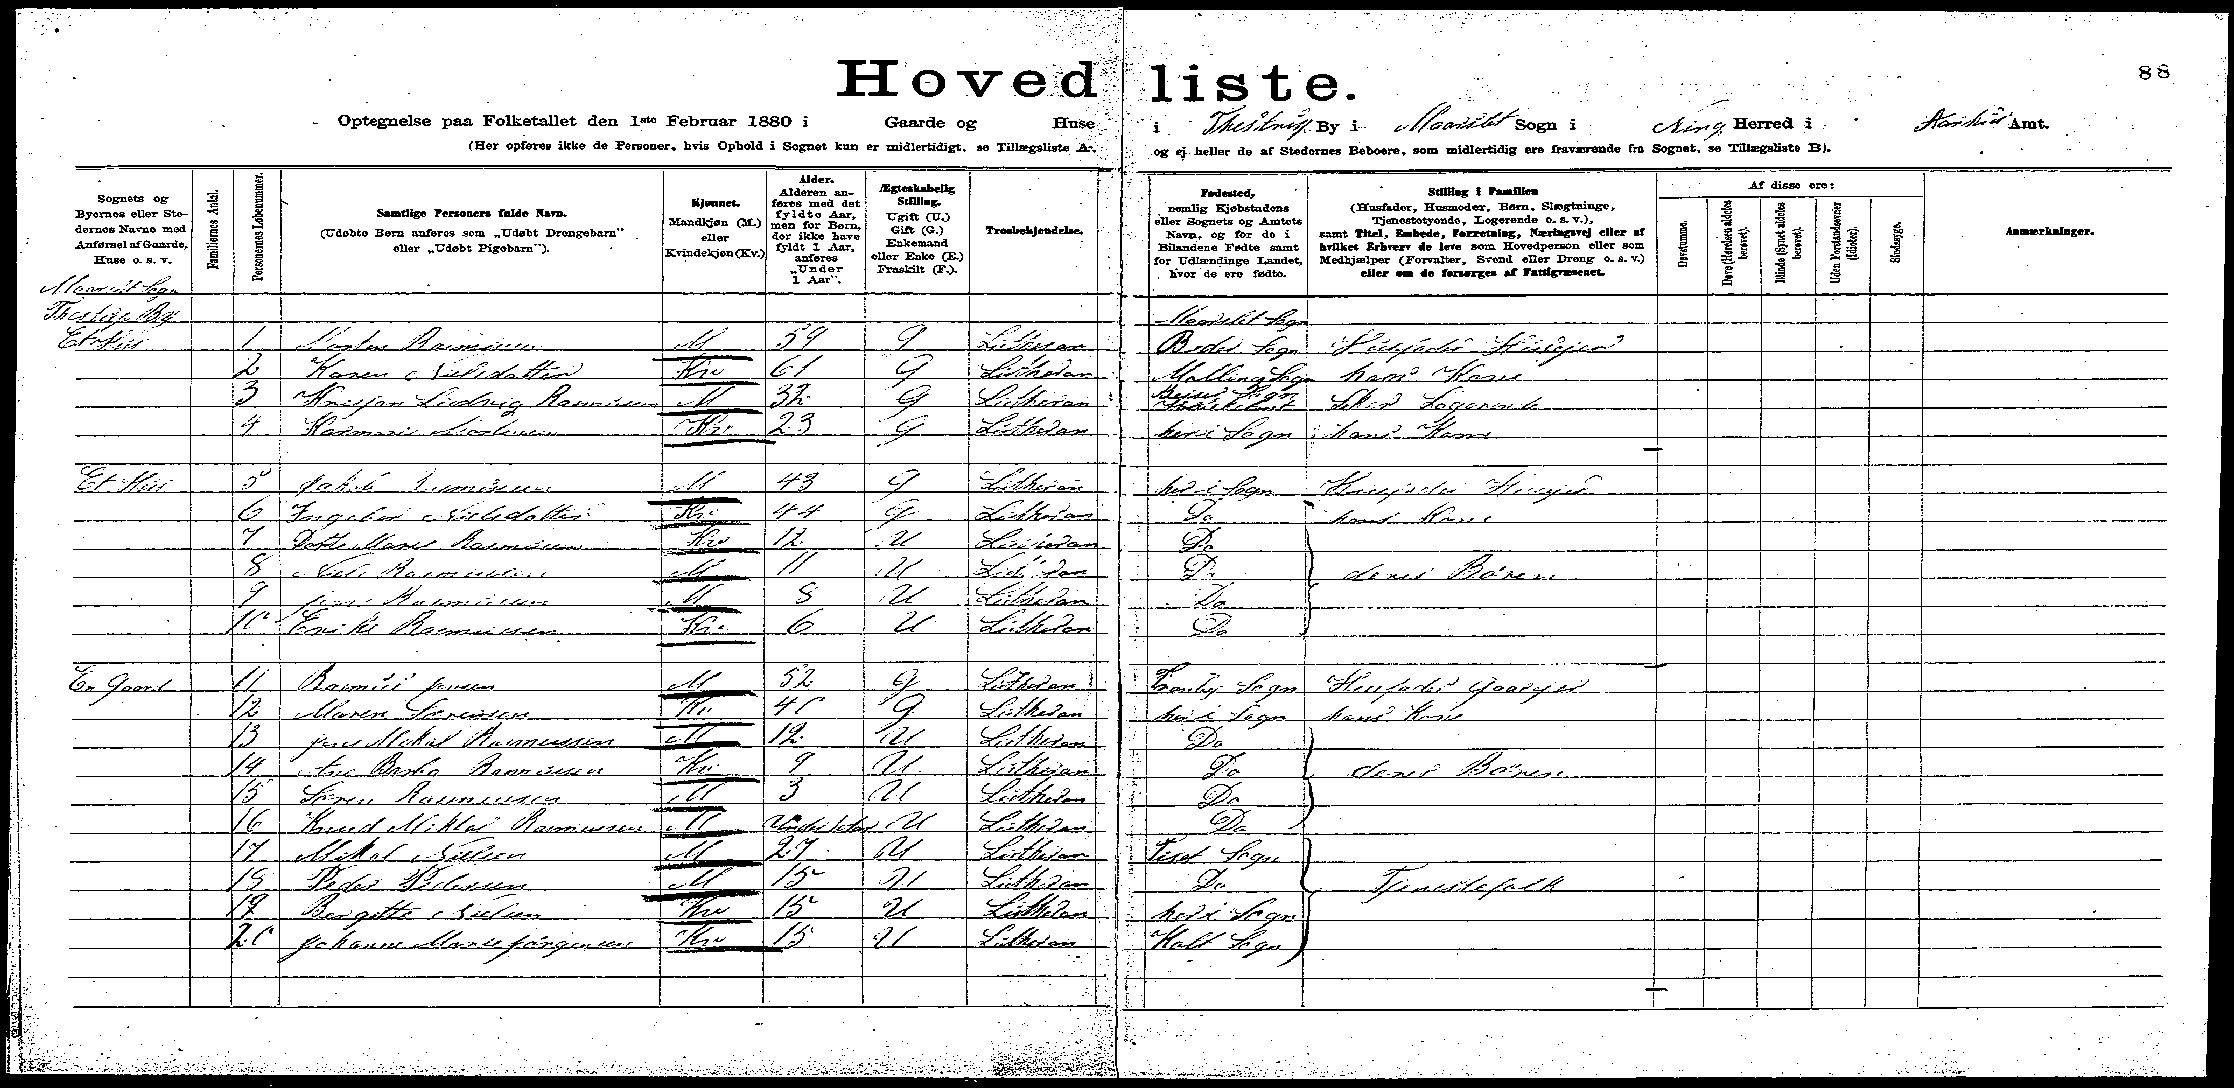 Hovedliste.
88
Optegnelse paa Folketallet den 1ste Februar 1880 i Gaarde og Huse i Thestrup By i Maarslet Sogn i Ning Herred i Aarhus Amt.
(Her opføres ikke de Personer, hvis Ophold i Sognet kun er midlertidigt, se Tillægsliste A, og ej heller de af Stedernes Beboere, som midlertidig ere fraværende fra Sognet, se Tillægsliste B).
Sognets og Byernes eller Stedernes Navne med Anførsel af Gaarde, Huse o. s. v.
Familiernes Antal.
Personernes Løbenummer.
Samtlige Personers fulde Navn. (Udøbte Børn anføres som „Udøbt Drengebarn" eller „Udøbt Pigebarn").
Kjønnet. Mandkjøn (M.) eller Kvindekjøn (Kv.)
Alder. Alderen anføres med det fyldte Aar, men for Børn, der ikke have fyldt 1 Aar, anføres „Under 1 Aar".
Ægteskabelig Stilling. Ugift (U.) Gift (G.) Enkemand eller Enke (E.) Fraskilt (F.).
Troesbekjendelse.
Fødested, nemlig Kjøbstadens eller Sognets og Amtets Navn, og for de i Bilandene Fødte samt for Udlændinge Landet, hvor de ere fødte.
Stilling i Familien (Husfader, Husmoder, Børn, Slægtninge, Tjenestetyende, Logerende o. s. v.), samt Titel, Embede, Forretning, Næringsvej eller af hvilket Erhverv de leve som Hovedperson eller som Medhjælper (Forvalter, Svend eller Dreng o. s. v.) eller om de forsørges af Fattigvæsenet.
Af disse ere:
Døvstumme.
Døve (Hørelsen aldeles berøvet).
Blinde (Synet aldeles berøvet).
Uden Forstandsevner (Idioter).
Sindssyge.
Anmærkninger.
Maarslet Sogn
Thestrup By Maarslet Sogn
Et Hus 1 Morten Rasmussen M 59 G Lutheran Beder Sogn Husfader Husejer
2 Karen Nielsdatter Kv 61 G Lutheran Malling Sogn hans Kone
3 Kristjan Ludvig Rasmussen M 32 G Lutheran Logerende
4 Kv 23 G Lutheran her i Sogn hans Kone
Et Hus 5 Jakob Rasmussen M 43 G Lutheran her i Sogn Husfader Husejer
6 Ingebor Nielsdatter Kv 44 G Lutheran Do hans Kone
7 Dorte Marie Rasmussen Kv 12 U Lutheran Do
8 Niels Rasmussen M 11 U Lutheran Do deres Børen
9 Jens Rasmussen M 8 U Lutheran Do
10 Rasmussen Kv 6 U Lutheran Do
En Gaard 11 Rasmus Jensen M 52 G Lutheran Tranbj Sogn Husfader Gaarejer
12 Maren Sørensen Kv G Lutheran her i Sogn hans Kone
13 Jens Mikal Rasmussen M 12 U Lutheran Do
14 Ane Rasmussen Kv 9 U Lutheran Do deres Børen
15 Søren Rasmussen M 3 U Lutheran Do
16 Knud Rasmussen M Under 1 Aar U Lutheran Do
17 Mikal Nielsen M 27 U Lutheran Tiset Sogn
18 Peder Pedersen M 15 U Lutheran Do Tjenestefolk
19 Bergitte Nielsen Kv 15 U Lutheran her i Sogn
20 Johanne Marie Jørgensen Kv 15 U Lutheran Kolt Sogn